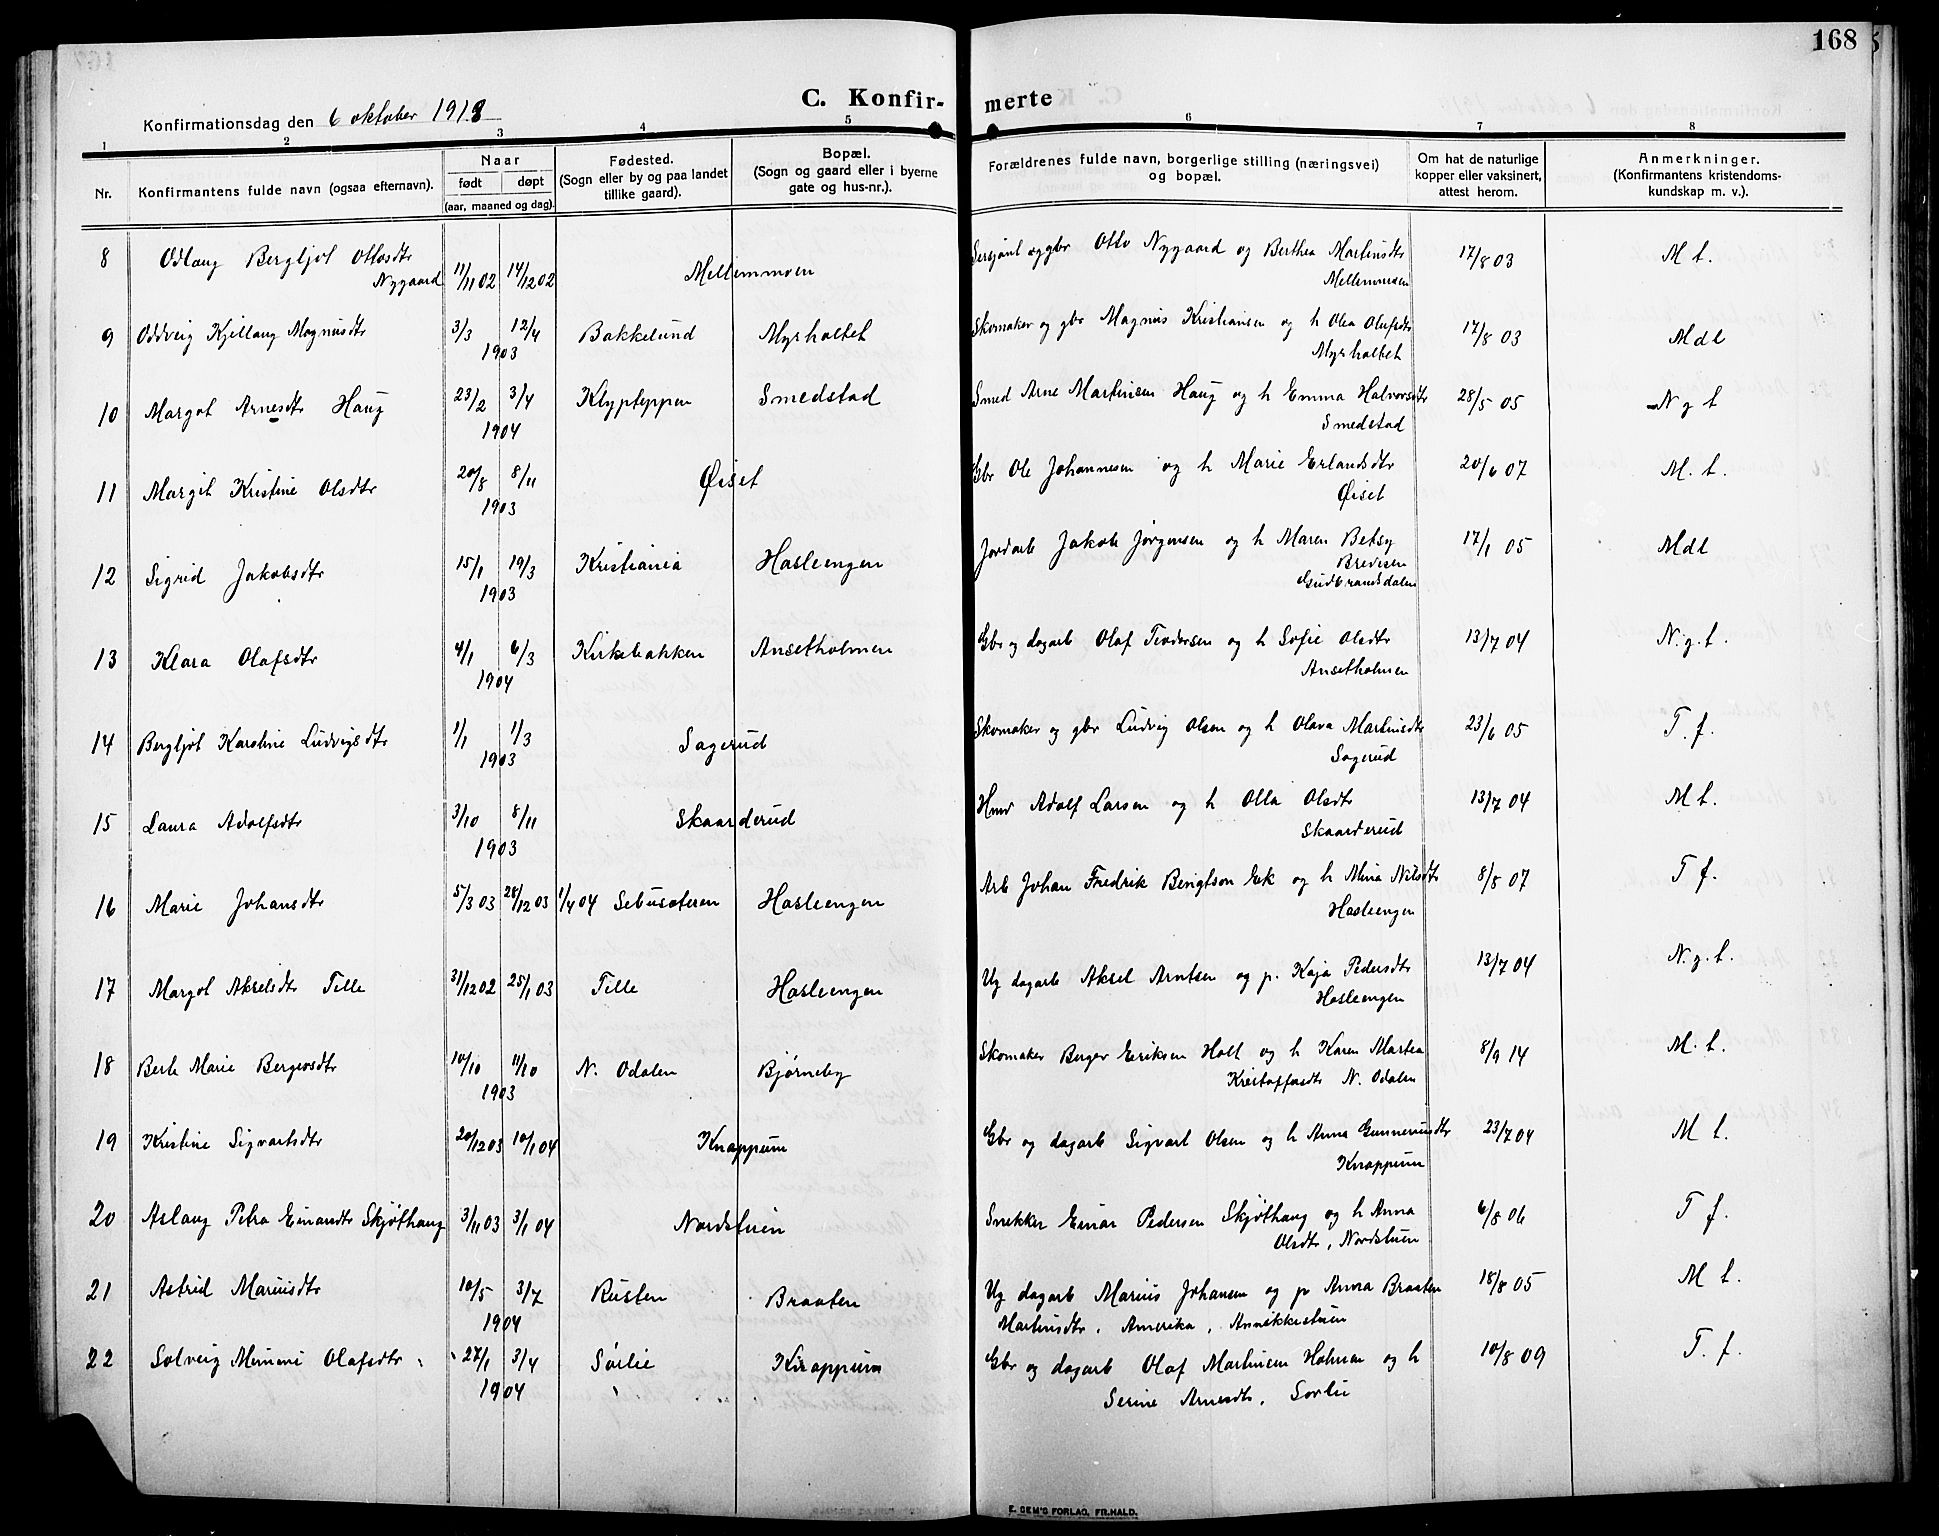 168
C. Konfir- merte
Konfirmationsdag den 6 oktober 1918
1 2 3 4 5 6 7 8
Nr. Konfirmantens fulde navn (ogsaa efternavn). Naar født døpt (aar, maaned og dag). Fødested. (Sogn eller by og paa landet tillike gaard). Bopæl. (Sogn og gaard eller i byerne gate og hus-nr.). Forældrenes fulde navn, borgerlige stilling (næringsvei) og bopæl. Om hat de naturlige kopper eller vaksinert, attest herom. Anmerkninger. (Konfirmantens kristendoms- kundskap m. v.).
8 Odlaug Bergljot Ottosdtr Nygaard 11/11 02 14/12 02 Mellemmoen Sersjant og gbr Otto Nygaard og Berthea Martinsdtr Mellemmoen 17/8 03 M t.
9 Oddveig Kjellaug Magnusdtr 3/3 12/4 1903 Bakkelund Myrholtet Skomaker og gbr Magnus Kristiansen og h Olea Olufsdtr Myrholtet 17/8 03 Mdl
10 Margot Arnesdtr Haug 23/2 3/4 1904 Klypteppen Smedstad Smed Arne Martinsen Haug og h Emma Halvorsdtr Smedstad 28/5 05 N g t
11 Margit Kristine Olsdtr 20/8 8/11 1903 Øiset Gbr Ole Johannesen og h Marie Erlandsdtr Øiset 20/6 07 M. t.
12 Sigrid Jakobsdtr 15/1 19/3 1903 Kristiania Hasleengen Jordarb Jakob Jørgensen og h Maren Betsy Bredesen Gudbrandsdalen 17/1 05 Mdl
13 Klara Olafsdtr 4/1 6/3 1904 Kirkebakken Ansetholmen Gbr og dagarb Olaf Teodorsen og h Sofie Olsdtr Ansetholmen 13/7 04 N. g. t.
14 Bergljot Karoline Ludvigsdtr 1/1 1/3 1903 Sagerud Skomaker og gbr Ludvig Olsen og h Olava Martinsdtr Sagerud 23/6 05 T. f.
15 Laura Adolfsdtr 3/10 8/11 1903 Skaarderud Hmd Adolf Larsen og h Olla Olsdtr Skaarderud 13/7 04 M t.
16 Marie Johansdtr 5/3 03 28/12 03 1/4 04 Sebusæteren Hasleengen Arb Johan Fredrik Bengtson Ek og h Mina Nilsdtr Hasleengen 8/8 07 T f.
17 Margot Akselsdtr Tille 31/12 02 25/1 03 Tille Hasleengen Ug dagarb Aksel Arntsen og p. Kaja Pedersdtr Hasleengen 13/7 04 N. g. t.
18 Berte Marie Bergersdtr 10/10 11/10 1903 N. Odalen Bjørneby Skomaker Berger Eriksen Holt og h Karen Martea Kristoffersdtr N. Odalen 8/9 14 M. t.
19 Kristine Sigvartsdtr 20/12 03 10/1 04 Knappum Gbr og dagarb Sigvart Olsen og h Anna Gunneriusdtr Knappum 23/7 04 M t.
20 Aslaug Petra Einarsdtr Skjøthaug 3/11 03 3/1 04 Nordstuen Snekker Einar Pedersen Skjøthaug og h Anna Olsdtr, Nordstuen 6/8 06 T f.
21 Astrid Mariusdtr 10/5 3/7 1904 Rusten Braaten Ug dagarb Marius Johansen og p Anna Braaten Martinsdtr, Amerika, Annikkestuen 18/8 05 M t.
22 Solveig Minini Olafsdtr 27/1 3/4 1904 Sørlie Knappum Gbr og dagarb Olaf Martinsen Holmen og h Serine Arnesdtr, Sørlie 10/8 09 T. f.
E. SEM'S FORLAG, FR.HALD.